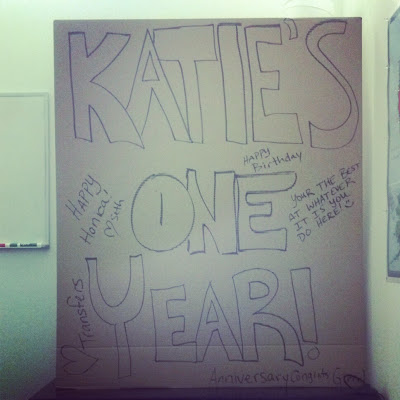 KATIE'S
HAPPY
Birthday
ONE
HAPPY
Honica!
♡ Seth
YOUR THE BEST
AT WHATEVER
IT IS YOU
DO HERE!
YEAR!
♡ Transfers
Anniversary Congrats